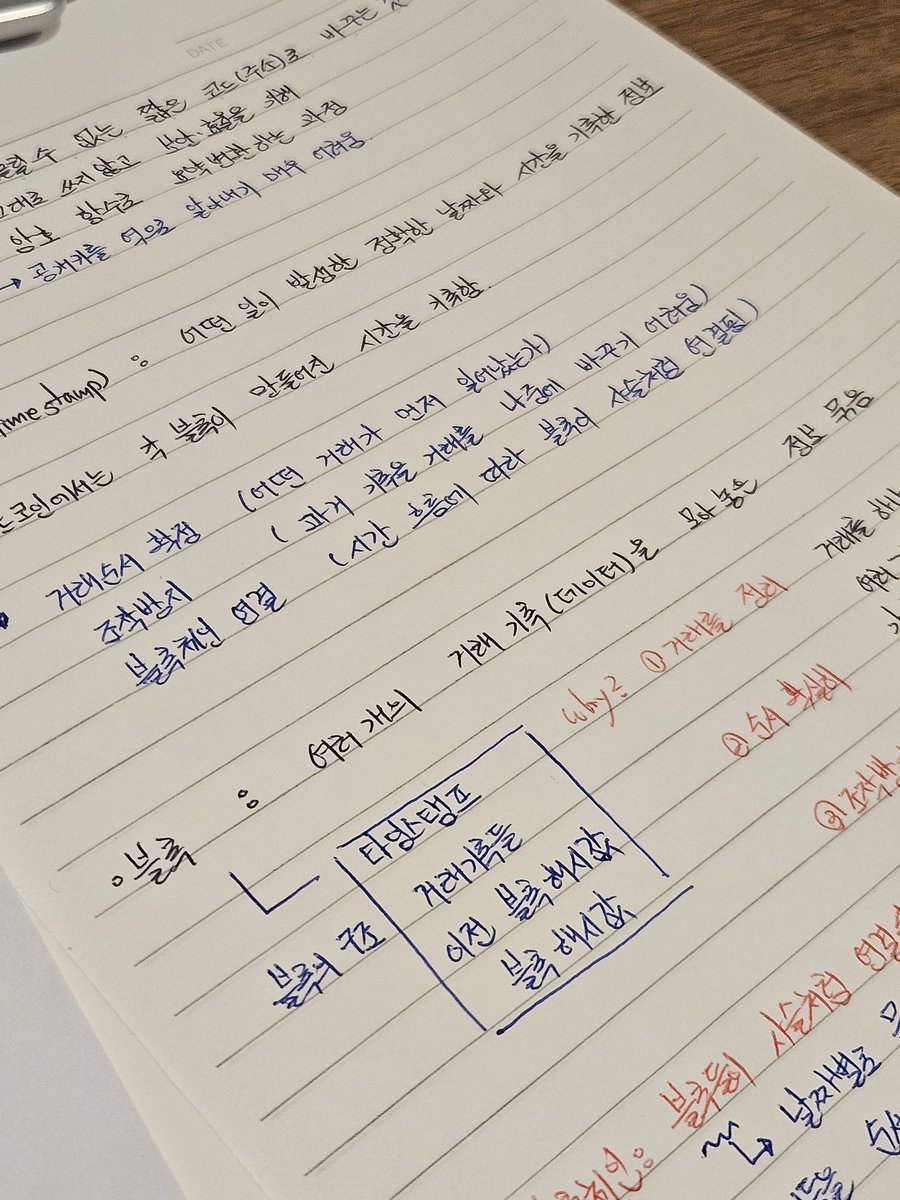 DATE
수 없는 짧은 코드(주소)로 바꾸는
쓰지 않고 보안·효율을 위해
암호 함수로 요약 변환하는 과정
→ 공개키를 역으로 알아내기 매우 어려움
stamp) : 어떤 일이 발생한 정확한 날짜와 시간을 기록한 정보
코인에서는 각 블록이 만들어진 시간을 기록함.
거래순서 확정 (어떤 거래가 먼저 일어났는가)
조작방지 (과거 기록을 거래를 나중에 바꾸기 어려움)
블록체인 연결 (시간 흐름에 따라 블록이 사슬처럼 연결됨)
블록 : 여러개의 거래 기록(데이터)을 모아 놓은 정보 묶음
why? ① 거래를 정리
거래를
② 순서 확실히
여러
③ 조작방
블록의 구조
타임스탬프
거래기록들
이전 블록 해시값
블록 해시값
: 블록들이 사슬처럼
↳ 날짜별로